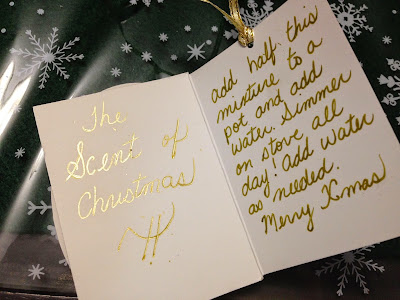 The
Scent of
Christmas
add half this
mixture to a
pot and add
water. Simmer
on stove all
day! Add water
as needed.
Merry Xmas